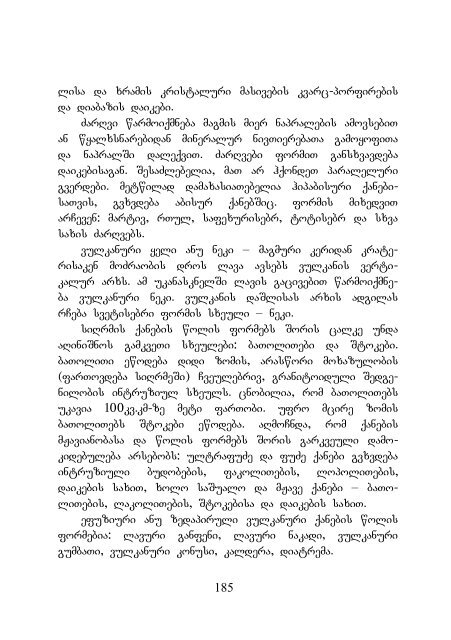 ლისა და ხრამის კრისტალური მასივების კვარც-პორფირების
და დიაბაზის დაიკები.
ძარღვი წარმოიქმნება მაგმის მიერ ნაპრალების ამოვსებით
ან წყალხსნარებიდან მინერალურ ნივთიერებათა გამოყოფითა
და ნაპრალში დალექვით. ძარღვები ფორმით განსხვავდება
დაიკებისაგან. შესაძლებელია, მათ არ ჰქონდეთ პარალელური
გვერდები. მეტწილად დამახასიათებელია ჰიპაბისური ქანები-
სათვის, გვხვდება აბისურ ქანებშიც. ფორმის მიხედვით
არჩევენ: მარტივ, რთულ, საფეხურისებრ, ტოტისებრ და სხვა
სახის ძარღვებს.
ვულკანური ყელი ანუ ნეკი – მაგმური კერიდან კრატე-
რისაკენ მოძრაობის დროს ლავა ავსებს ვულკანის ვერტი-
კალურ არხს. ამ უკანასკნელში ლავის გაცივებით წარმოიქმნე-
ბა ვულკანური ნეკი. ვულკანის დაშლისას არხის ადგილას
რჩება სვეტისებრი ფორმის სხეული – ნეკი.
სიღრმის ქანების წოლის ფორმებს შორის ცალკე უნდა
აღინიშნოს გამკვეთი სხეულები: ბათოლითები და შტოკები.
ბათოლითი ეწოდება დიდი ზომის, არასწორი მოხაზულობის
(ფართოვდება სიღრმეში) ჩვეულებრივ, გრანიტოიდული შედგე-
ნილობის ინტრუზიულ სხეულს. ცნობილია, რომ ბათოლითებს
უკავია 100კვ.კმ-ზე მეტი ფართობი. უფრო მცირე ზომის
ბათოლითებს შტოკები ეწოდება. აღმოჩნდა, რომ ქანების
მჟავიანობასა და წოლის ფორმებს შორის გარკვეული დამო-
კიდებულება არსებობს: ულტრაფუძე და ფუძე ქანები გვხვდება
ინტრუზიული ბუდობების, ფაკოლითების, ლოპოლითების,
დაიკების სახით, ხოლო საშუალო და მჟავე ქანები – ბათო-
ლითების, ლაკოლითების, შტოკებისა და დაიკების სახით.
ეფუზიური ანუ ზედაპირული ვულკანური ქანების წოლის
ფორმებია: ლავური განფენი, ლავური ნაკადი, ვულკანური
გუმბათი, ვულკანური კონუსი, კალდერა, დიატრემა.
185